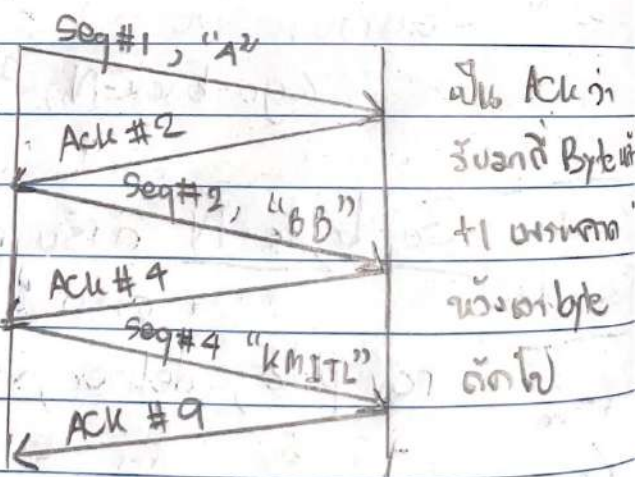 Seq#1, "A"
Ack #2
Seq#2, "BB"
Ack #4
Seq#4 "KMITL"
ACK #9
เป็น ACK ว่า
รับมากี่ Byte แล้ว
+1 เพราะคาด
หวังเอา byte
ถัดไป